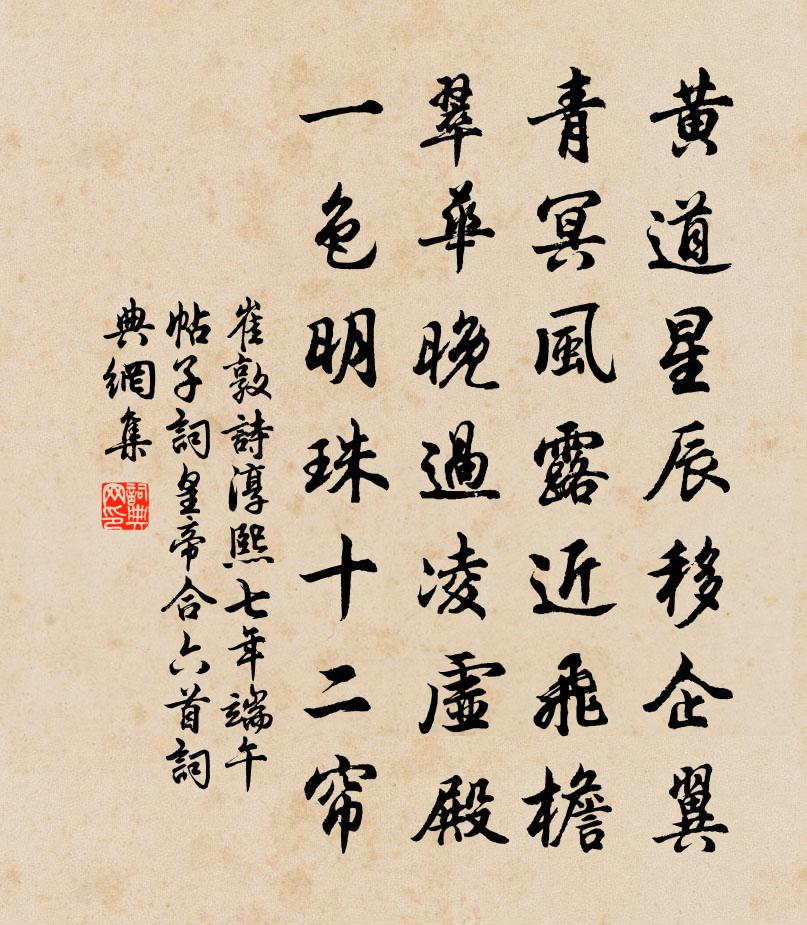 黄道星辰移企翼
青冥風露近飛檐
翠華晚過凌虛殿
一色明珠十二帘
崔敦詩淳熙七年端午
帖子詞皇帝合六首詞
典網集
詞典网印